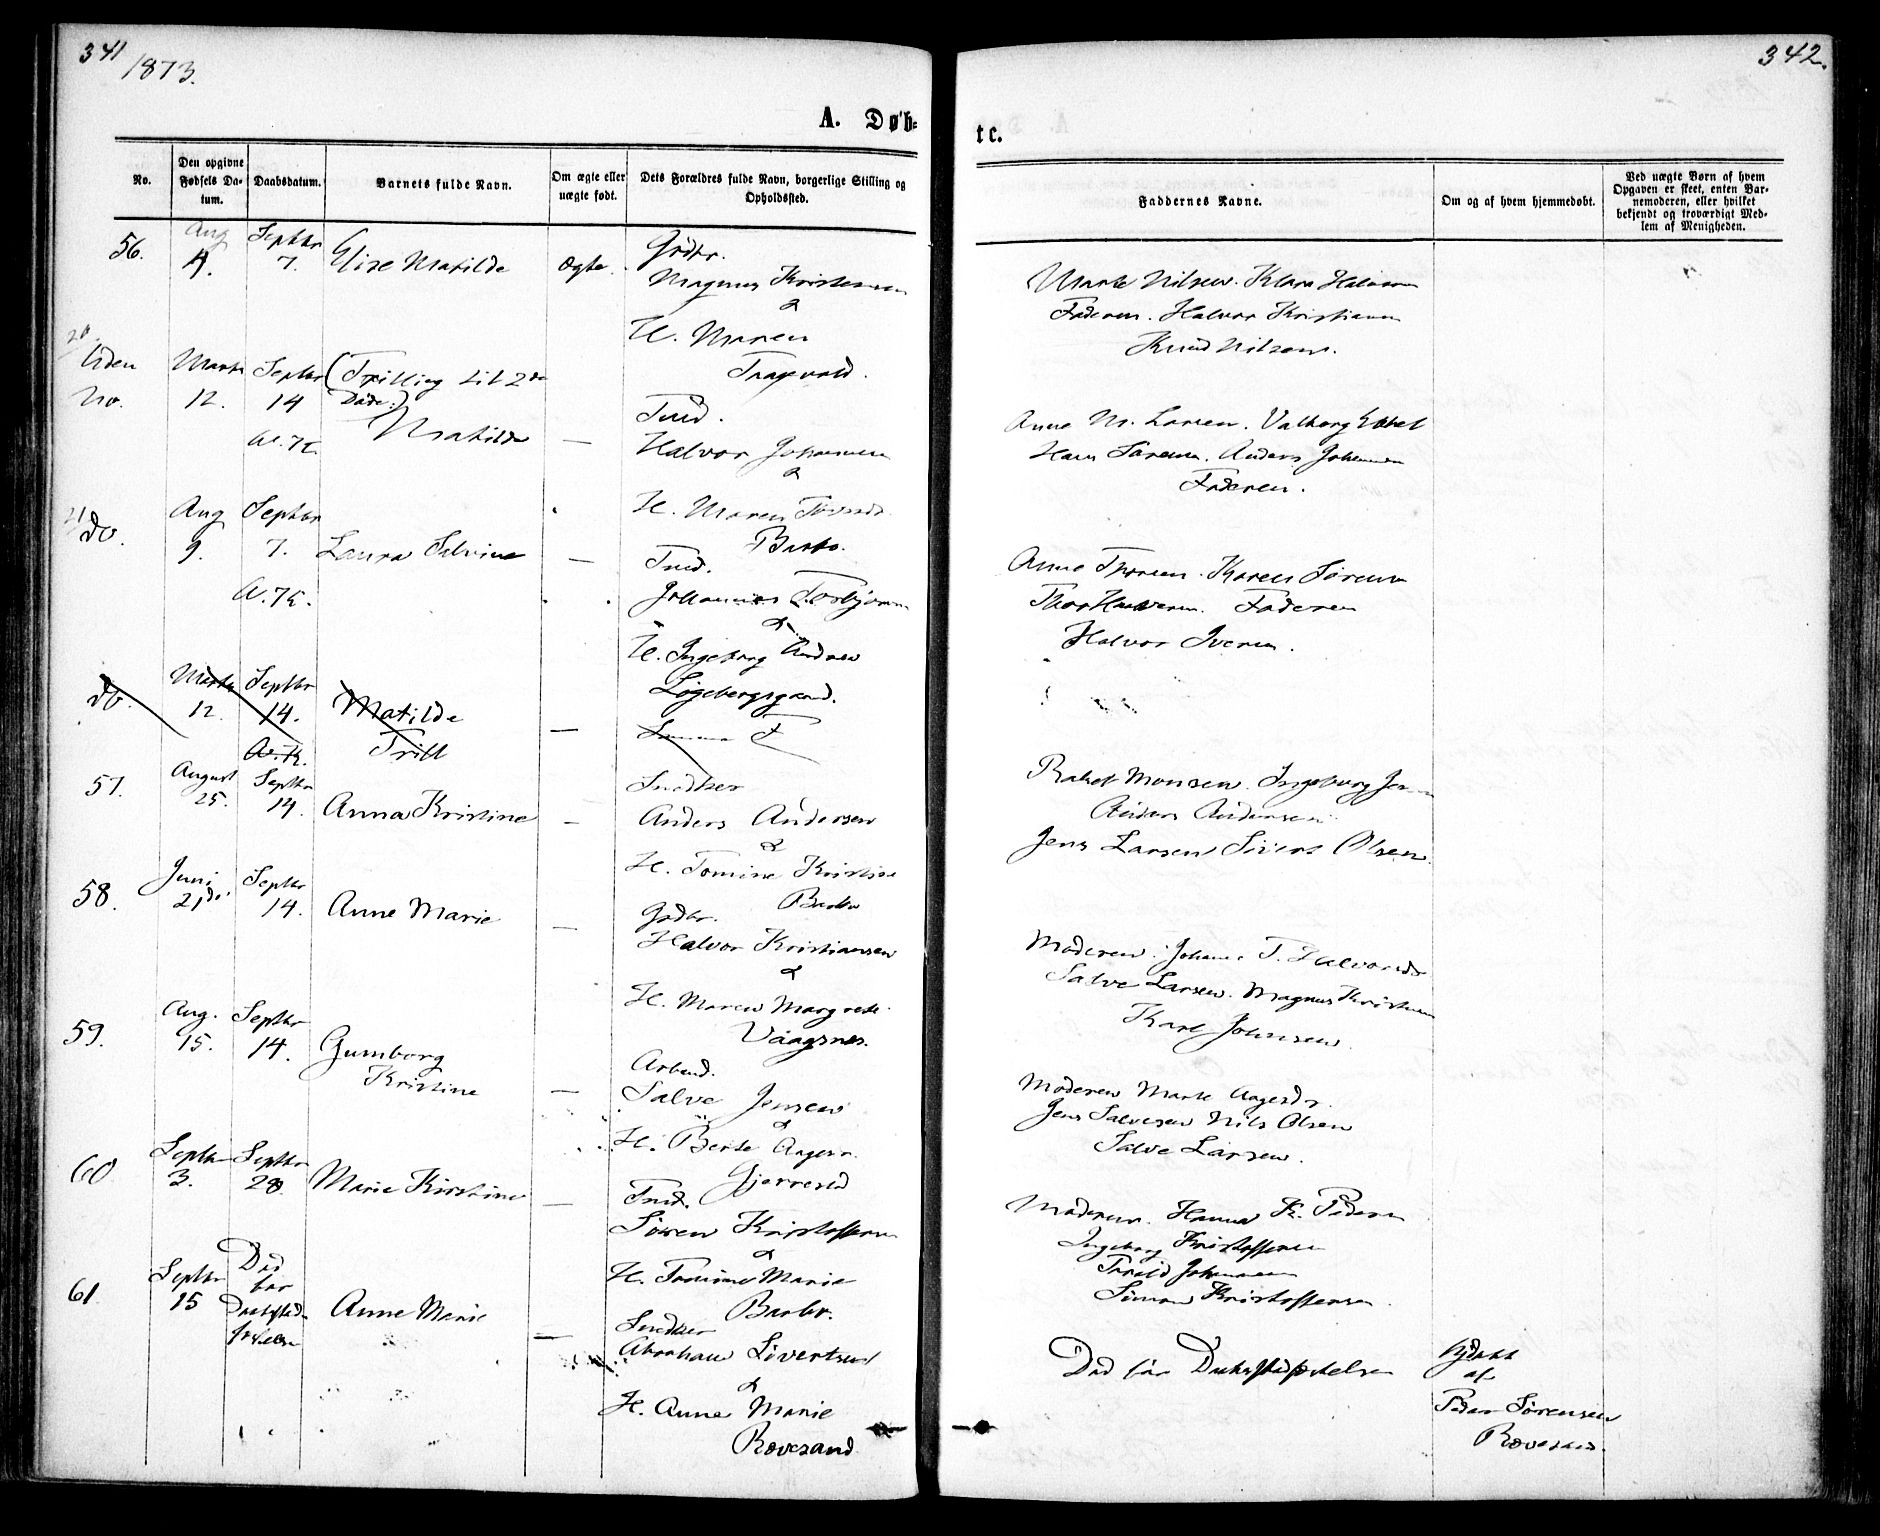 341
1873.
342.
A. Døb-
tc.
No.
Den opgivne Fødsels Da-
tum.
Daabsdatum.
Barnets fulde Navn.
Om ægte eller
uægte født.
Dets Forældres fulde Navn, borgerlige Stilling og
Opholdssted.
Faddernes Navne.
Om og af hvem hjemmedøbt.
Ved uægte Børn af hvem
Opgaven er skeet, enten Bar-
nemoderen, eller hvilket
bekjendt og troværdigt Med-
lem af Menigheden.
56.
Aug
4.
Septbr
7.
Elise Matilde
Ægte.
Grdbr.
Magnus Kristensen
&
H. Maren
Tragevold.
Marte Nilsen. Klara Halvorsen
Faderen. Halvor Kristiansen
Knud Nilsen.
20
Uden
No.
Marts
12.
Septbr
14
A. K.
(Trilling til 2de
Døde.)
Matilde
—
Tmd.
Halvor Johansen
&
H. Maren Tovsdr.
Barbo.
Anne M. Larsen. Valborg
Hans Larsen. Anders Johannesen
Faderen.
21
do.
Aug
9.
Septbr
7.
A. K.
Laura Silvine
—
Tmd.
Johannes Torbjørnsen
&
H. Ingeborg Andrea
Løgebergsgaard.
Anne Thorsen. Karen Sørensen
Thor Halvorsen. Faderen
Halvor Iversen.
do.
Marts
12.
Septbr
14.
A. K.
Matilde
Trill
—
57.
August
25.
Septbr
14.
Anna Kristine
—
Snedker
Anders Andersen
&
H. Tomine Kristine
Barbo
Rakel Monsen. Ingeborg
Anders Andersen
Jens Larsen Sivert Olsen.
58.
Juni
21de
Septbr
14.
Anne Marie
—
Grdbr.
Halvor Kristiansen
&
H. Maren Margrete
Vaagsnes.
Moderen. Johanne T. Halvorsdr
Salve Larsen. Magnus Kristensen
Karl Johnsen
59.
Aug.
15.
Septbr
14.
Gumborg
Kristine
—
Arbmd.
Salve Jensen
&
H. Berte Aagesdr.
Gjerresld
Moderen Marte Aagesdr.
Jens Salvesen Nils Olsen
Salve Larsen.
60
Septbr
3.
Septbr
28.
Marie Kirstine
—
Tmd.
Søren Kristoffersen
&
H. Tomine Marie
Barbo.
Moderen. Hanna K. Pedersen
Ingeborg Kristoffersen
Tarald Johannesen
Simon Kristoffersen.
61.
Septbr
15
Død
før
Daabsstad-
fæstelsen
Anne Marie
—
Snedker
Abraham Sivertsen
&
H. Anne Marie
Rævesand
Død før Daabsstadfæstelsen
hjdøbt
af
Peder Sørensen
Rævesand.